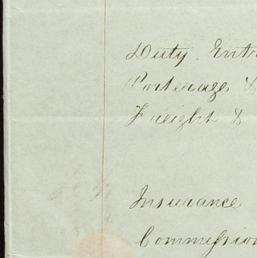 Duty. Entr
Porterage &
Freight &
Insurance
Commission